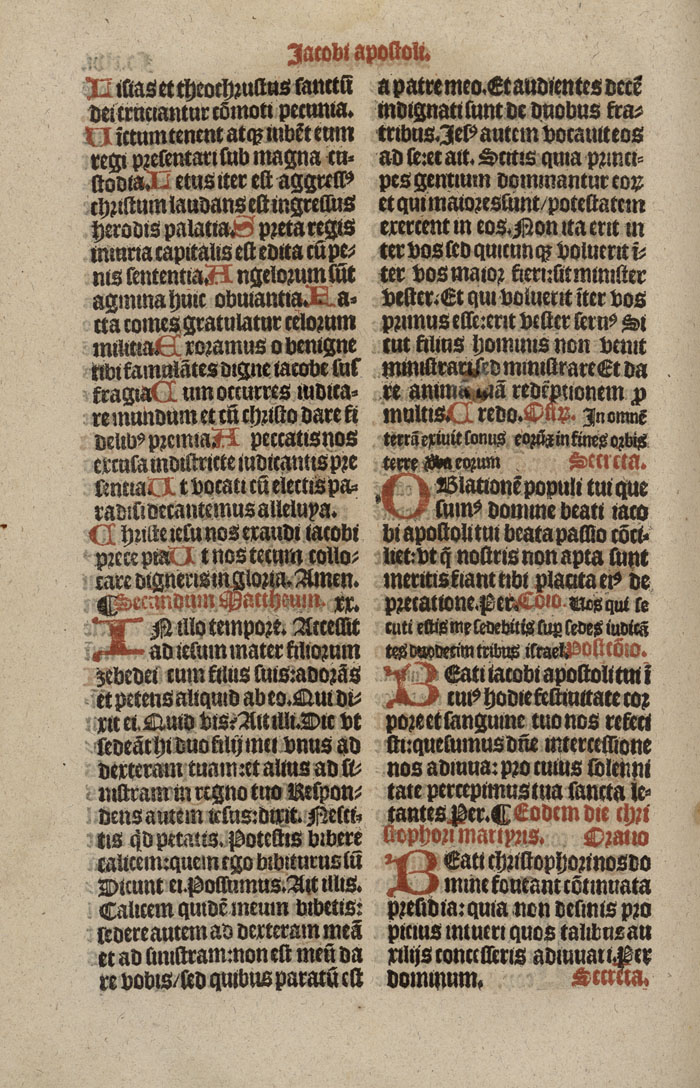 Jacobi apostoli.
Lisias et theochristus sanctū
dei cruciantur cōmoti pecunia.
Uīctum tenent atqꝫ iubēt eum
regi presentari sub magna cu-
stodia. Letus iter est aggressꝰ
christum laudans est ingressus
herodis palatia. Spreta regis
iniuria capitalis est edita cū pe-
nis sententia. Angelorum sūt
agmina huic obuiantia. Fa-
cta comes gratulatur celorum
militia. Exoramus o benigne
tibi famulātes digne iacobe suf
fragia Cum occurres iudica-
re mundum et cū christo dare fi
delibꝰ premia. A peccatis nos
excusa indistricte iudicantis pre
sentia Ut vocati cū electis pa-
radisi decantemus alleluya.
Christe iesu nos exaudi iacobi
prece pia Ut nos tecum collo-
care digneris in gloria. Amen.
¶ Secundum Mattheum. xx.
IN illo tempore. Accessit
ad iesum mater filiorum
zebedei cum filiis suis: adorās
et petens aliquid ab eo. Qui di-
xit ei. Quid vis? Ait illi. Dic vt
sedeāt hi duo filij mei vnus ad
dexteram tuam: et alius ad si-
nistram in regno tuo Respon-
dens autem iesus: dixit. Nesci-
tis qd̄ petatis. Potestis bibere
calicem: quem ego bibiturus sū
Dicunt ei. Possumus. Ait illis.
Calicem quidē meum bibetis:
sedere autem ad dexteram meā
et ad sinistram: non est meū da
re vobis/sed quibus paratū est
a patre meo. Et audientes decē
indignati sunt de duobus fra-
tribus. Jesꝰ autem vocauit eos
ad se: et ait. Scitis quia princi-
pes gentium dominantur eoꝝ
et qui maiores sunt/potestatem
exercent in eos. Non ita erit in
ter vos sed quicunqꝫ voluerit ī-
ter vos maior fieri: sit minister
vester. Et qui voluerit īter vos
primus esse: erit vester seruꝰ Si
cut filius hominis non venit
ministrari sed ministrare Et da
re animā redēptionem ꝓ
multis. Credo. Offꝝ. In omnē
terrā exiuit sonus eorū: et in fines orbis
terre verba eorum Secreta.
OBlationē populi tui que
sumꝰ domine beati iaco
bi apostoli tui beata passio cōci-
liet: vt q̄ nostris non apta sunt
meritis fiant tibi placita eiꝰ de
precatione. Per. Cōio. Uos qui se
cuti estis me sedebitis suꝑ sedes iudicā
tes duodecim tribus israel. Postcōio.
BEati iacobi apostoli tui ī
cuiꝰ hodie festiuitate cor
pore et sanguine tuo nos refeci
sti: quesumus dn̄e intercessione
nos adiuua: pro cuius solenni
tate percepimus tua sancta le-
tantes. Per. ¶ Eodem die chri
stophori martyris. Oratio
BEati christophori nos do
mine foueant cōtinuata
presidia: quia non desinis pro
picius intueri quos talibus au
xilijs concesseris adiuuari. Per
dominum. Secreta.